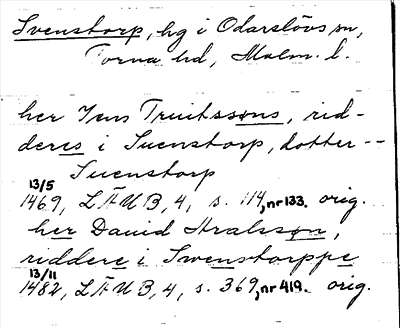 Svenstorp, hg i Odarslövs sn,
Torna hd, Malm. l.
her Jens Truitssøns, rid-
deres i Suenstorp, dotter --
Suenstorp
13/5
1469, LÄUB, 4, s. 114, nr 133. orig.
her Dauid Aralssøn,
riddere i Swenstorppe
13/11
1482, LÄUB, 4, s. 369, nr 419. orig.